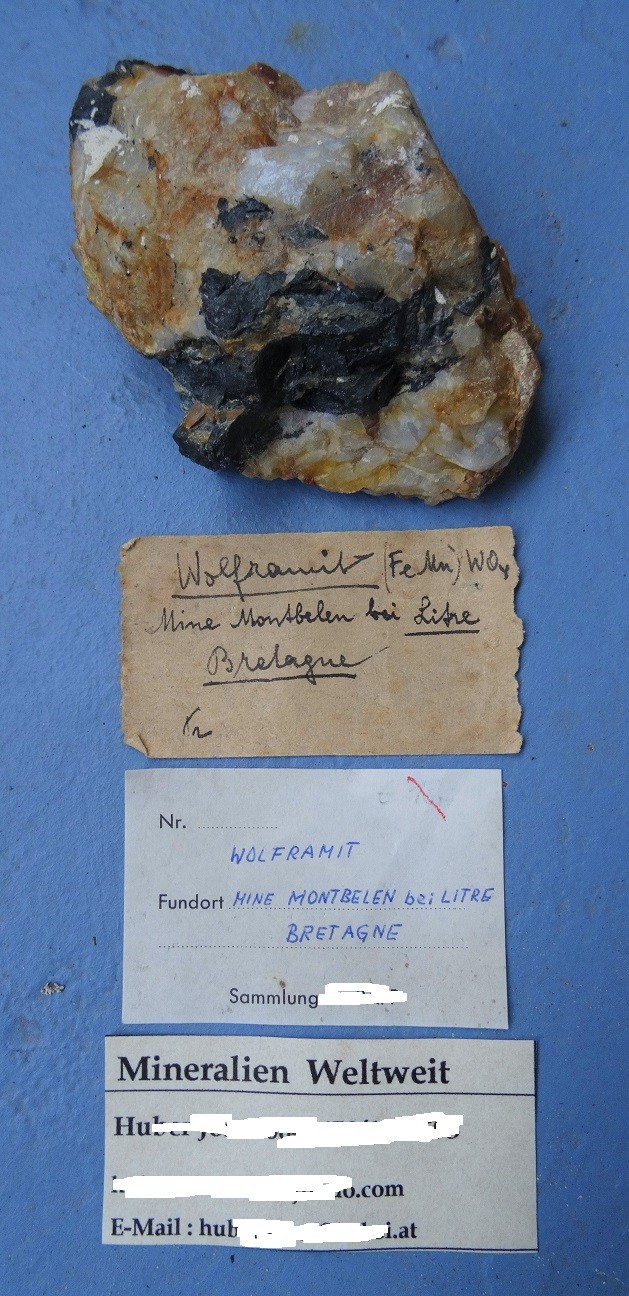 Wolframit (Fe Mn) WO4
Mine Montbelen bei Litre
Bretagne
Nr.
WOLFRAMIT
Fundort MINE MONTBELEN bei LITRE
BRETAGNE
Sammlung
Mineralien Weltweit
Huber
.com
E-Mail : hub .at